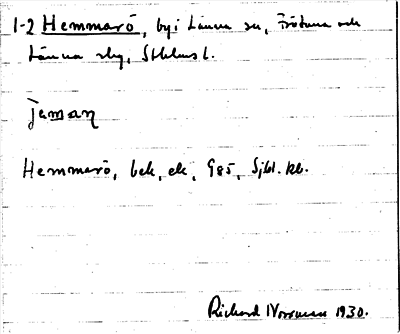 1-2 Hemmarö, by i Länna sn, Frötuna och
Länna skg, Sthlms l.
jeman
Hemmarö, bek, ek, G85, Sjbl. kb.
Richard Norrman 1930.